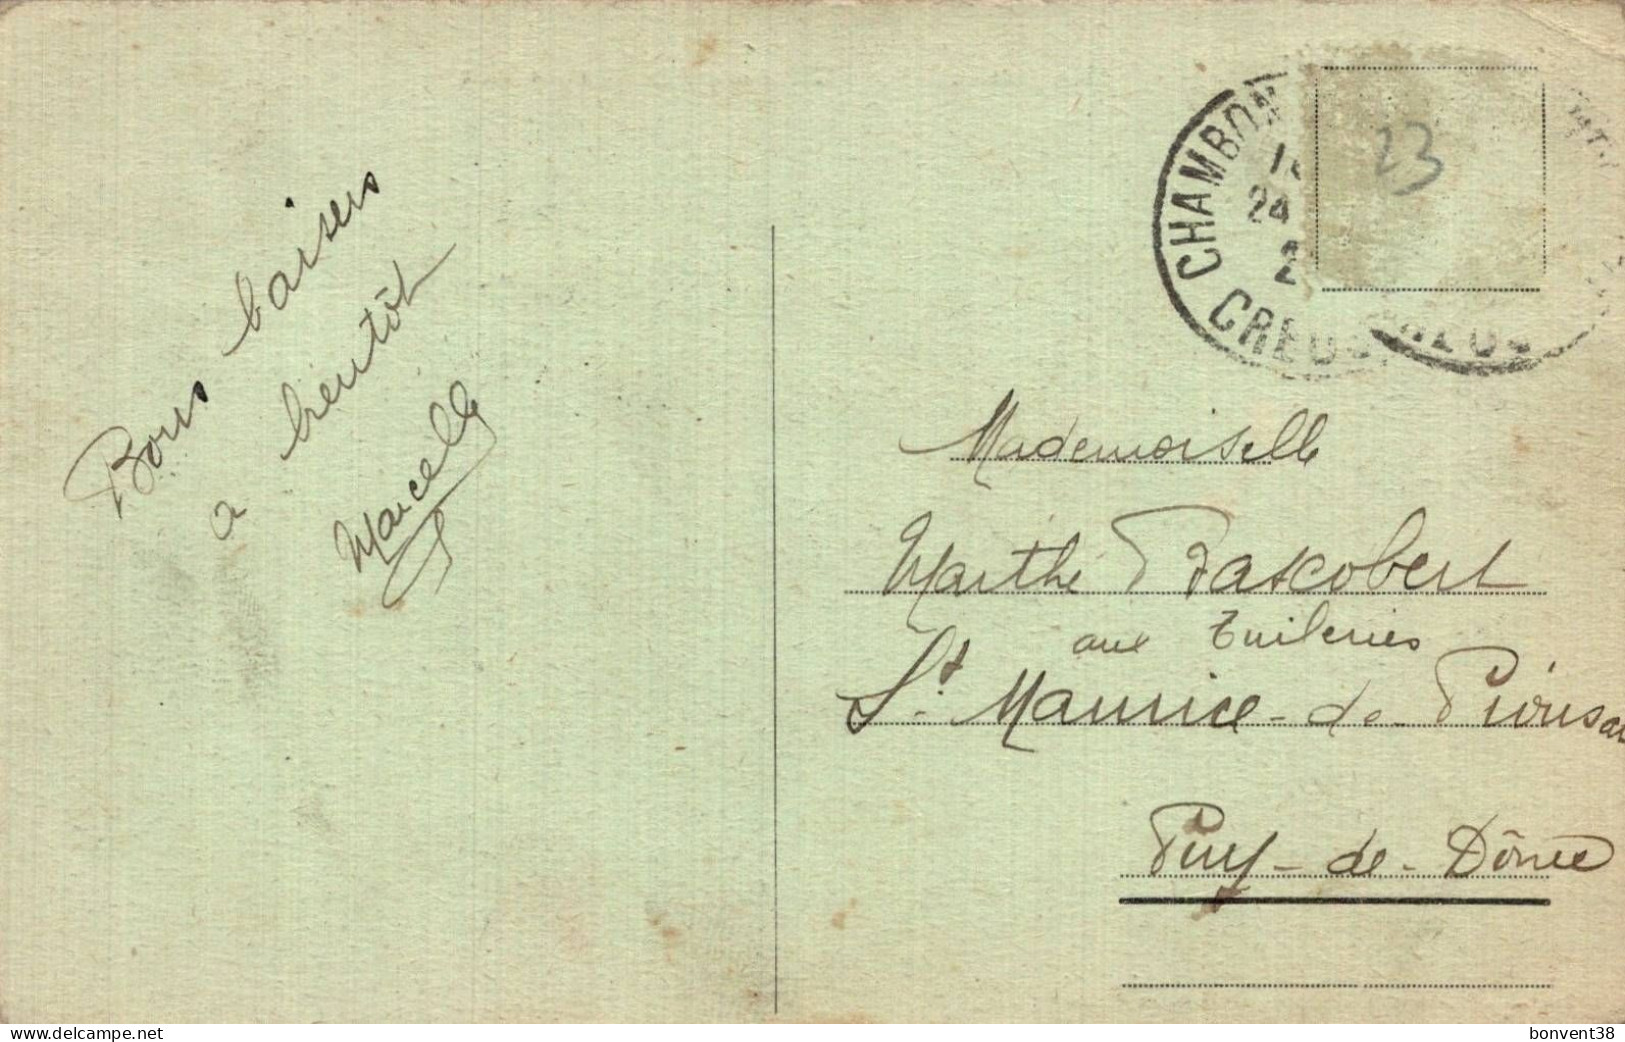 Bons baisers
à bientôt
Marcelle
CHAMBON
24
CREUS
23
Mademoiselle
Marthe Rascobert
aux Tuileries
St. Maurice-de-Pionsat
Puy-de-Dôme
www.delcampe.net
bonvent38